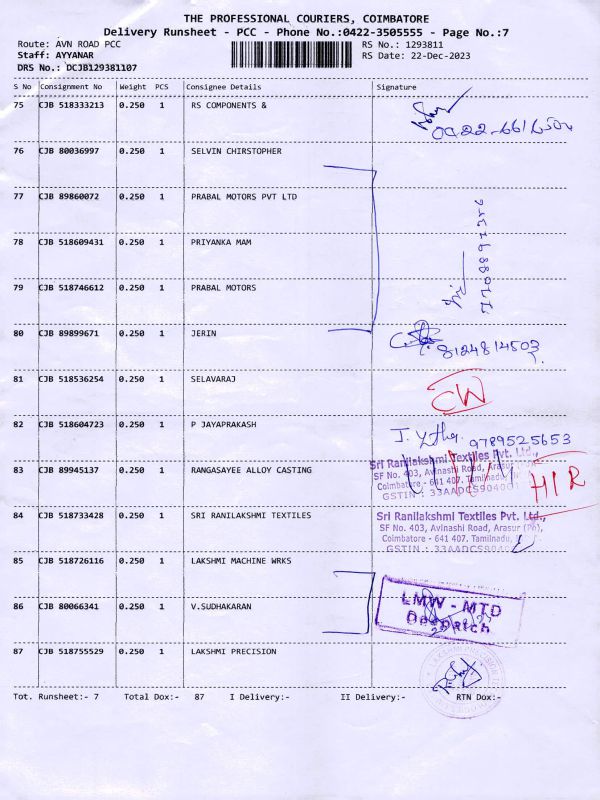 THE PROFESSIONAL COURIERS, COIMBATORE
Delivery Runsheet - PCC - Phone No.:0422-3505555 - Page No.:7
Route: AVN ROAD PCC RS No.: 1293811
Staff: AYYANAR RS Date: 22-Dec-2023
DRS No.: DCJB129381107
S No Consignment No Weight PCS Consignee Details Signature
75 CJB 518333213 0.250 1 RS COMPONENTS &
76 CJB 80036997 0.250 1 SELVIN CHIRSTOPHER
77 CJB 89860072 0.250 1 PRABAL MOTORS PVT LTD
78 CJB 518609431 0.250 1 PRIYANKA MAM
79 CJB 518746612 0.250 1 PRABAL MOTORS
80 CJB 89899671 0.250 1 JERIN
8124814503
81 CJB 518536254 0.250 1 SELAVARAJ CW
82 CJB 518604723 0.250 1 P JAYAPRAKASH
9789525653
83 CJB 89945137 0.250 1 RANGASAYEE ALLOY CASTING
Sri Ranilakshmi Textiles Pvt. Ltd.,
SF No. 403, Avinashi Road, Arasur
Coimbatore - 641 407. Tamilnadu,
GSTIN : 33AADCS9040
HIR
84 CJB 518733428 0.250 1 SRI RANILAKSHMI TEXTILES
Sri Ranilakshmi Textiles Pvt. Ltd.,
SF No. 403, Avinashi Road, Arasur (Po),
Coimbatore - 641 407. Tamilnadu,
GSTIN : 33AADCS9040
85 CJB 518726116 0.250 1 LAKSHMI MACHINE WRKS
86 CJB 80066341 0.250 1 V.SUDHAKARAN
LMW - MTD
Despatch
87 CJB 518755529 0.250 1 LAKSHMI PRECISION
Tot. Runsheet:- 7 Total Dox:- 87 I Delivery:- II Delivery:- RTN Dox:-